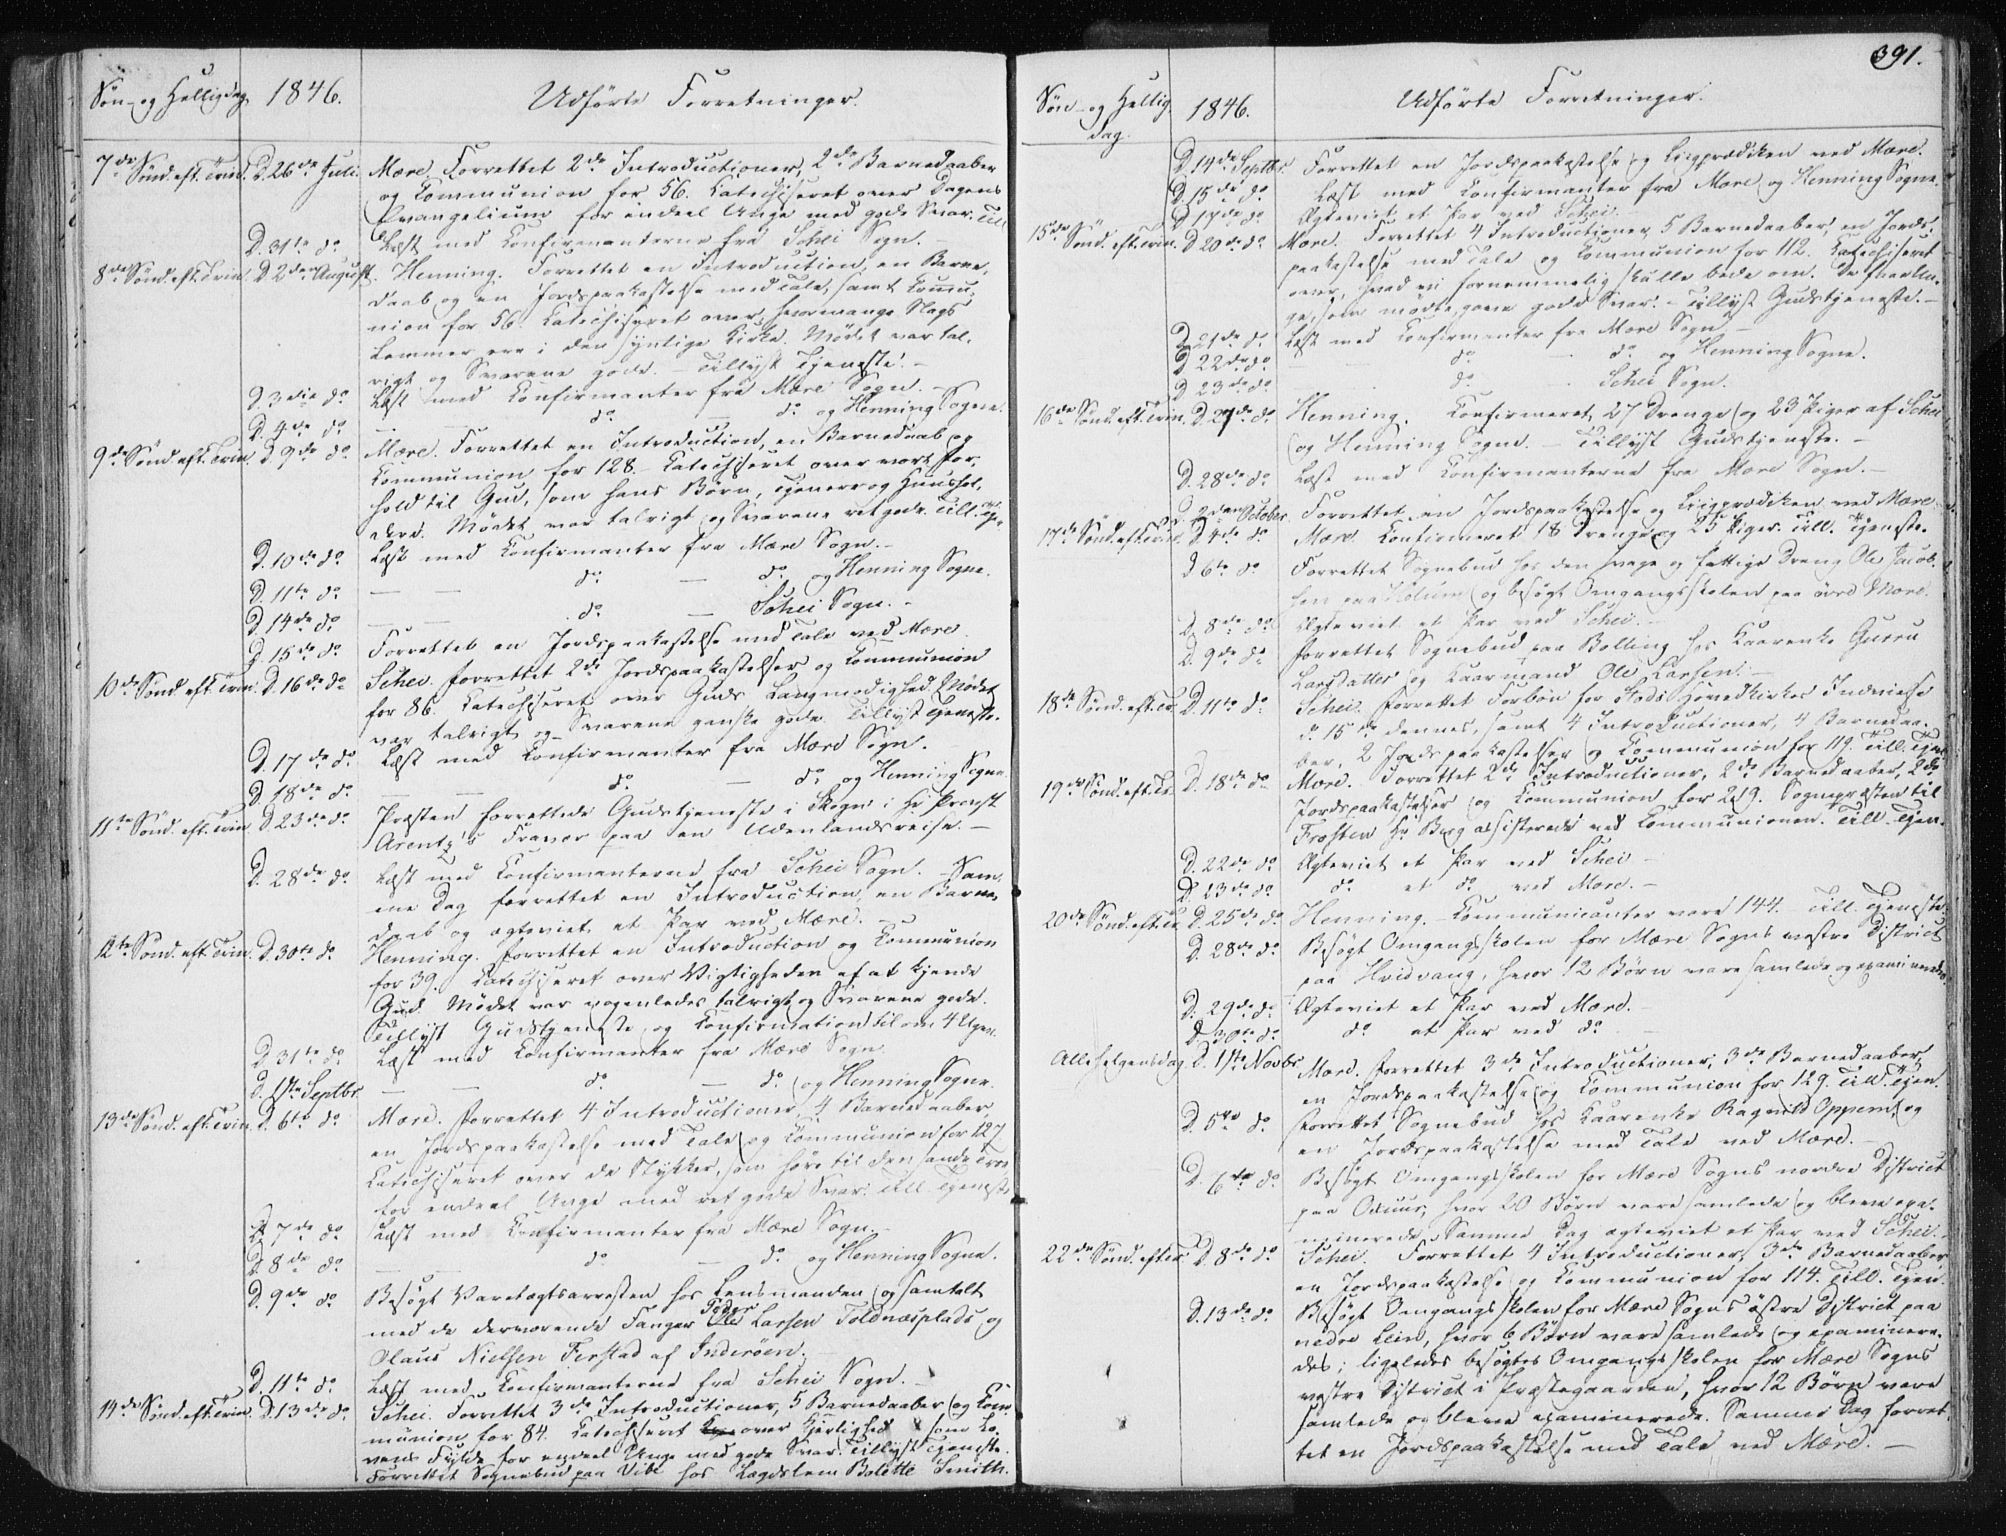 Søn- og Helligdag. 1846. Udførte Forretninger.
7de Sönd. eft. Trin. D. 26de Juli. Mære. Forrettet 2de Introductioner, 2de Barnedaaber
og Communion for 56. Catechiseret over Dagens
Evangelium for endeel Unge med gode Svar. Till
D. 31te do Læst med Confirmanterne fra Schei Sogn. –
8de Sönd. eft. Trin. D. 2den August. Henning. Forrettet en Introduction, en Barne-
daab og en Jordspaakastelse med Tale, samt Commu-
nion for 56. Catechiseret over, hvormange Slags
Lemmer ere i den synlige Kirke. Mødet var tal-
rigt og Svarene gode. – Tillyst Tjeneste. –
D. 3die do Læst med Confirmanter fra Mære Sogn. –
D. 4de do – – do – do og Henning Sogne.
9de Sönd. eft. Trin. D. 9de do Mære. Forrettet en Introduction, en Barnedaab og
Communion for 128. – Catechiseret over vort For-
hold til Gud, som hans Børn, Tjenere og Huushol-
dere. Mødet var talrigt og Svarene ret gode. Till. Tje-
D. 10de do Læst med Confirmanter fra Mære Sogn. –
D. 11te do – – do – do og Henning Sogne.
D. 14de do – – do – Schei Sogn. –
D. 15de do Forrettet en Jordspaakastelse med Tale ved Mære.
10de Sönd. eft. Trin. D. 16de do Schei. Forrettet 2de Jordspaakastelser og Communion
for 86. Catechiseret over Guds Langmodighed. Mødet
var talrigt og Svarene ganske gode. Tillyst Tjeneste.
D. 17de do Læst med Confirmanter fra Mære Sogn.
D. 18de do – – do – do og Henning Sogne.
11te Sönd. eft. Trin. D. 23de do Præsten forrettede Gudstjeneste i Skogn i Hr Provst
Arentz's Fravær paa en Udenlandsreise. –
D. 28de do Læst med Confirmanterne fra Schei Sogn. – Sam-
me Dag forrettet en Introduction, en Barne-
daab og ægteviet et Par ved Mære. –
12te Sönd. eft. Trin. D. 30te do Henning. Forrettet en Introduction og Communion
for 39. Catechiseret over Vigtigheden af at kjende
Gud. Mødet var nogenledes talrigt og Svarene gode.
Tillyst Gudstjeneste, og Confirmation til om 4 Uger.
D. 31te do Læst med Confirmanter fra Mære Sogn.
D. 1ste Septbr. – – do – do og Henning Sogne.
13de Sönd. eft. Trin. D. 6te do Mære. Forrettet 4 Introductioner, 4 Barnedaaber,
en Jordspaakastelse med Tale og Communion for 127.
Catechiseret over de Stykker, som høre til den sande Troe
for endeel Unge med ret gode Svar. Till. Tjeneste
D. 7de do Læst med Confirmanter fra Mære Sogn. –
D. 8de do – – do – do og Henning Sogne.
D. 9de do Besøgt Varetægtsarresten hos Lensmanden og samtalt
med de derværende Fanger Peder Larsen Toldnæsplads og
Olaus Nielsen Ferstad af Inderöen. –
D. 11te do Læst med Confirmanterne fra Schei Sogn. –
14de Sönd. eft. Trin. D. 13de do Schei. Forrettet 3de Introductioner, 5 Barnedaaber og Com-
munion for 84. Catechiseret over Kjerlighed som Lo-
vens Fylde for endeel Unge med gode Svar. Tillyst Tjeneste.
Forrettet Sognebud paa Vibe hos Lægdslem Bolette Smith.
391.
Søn- og Hellig-
dag. 1846. Udførte Forretninger.
D. 14de Septbr. Forrettet en Jordspaakastelse og Liigprædiken ved Mære.
D. 15de do Læst med Confirmanter fra Mære og Henning Sogne.
D. 17de do Ægteviet et Par ved Schei. –
15de Sönd. eft. Trin. D. 20de do Mære. Forrettet 4 Introductioner, 5 Barnedaaber, en Jords-
paakastelse med Tale og Communion for 112. Catechiseret
over, hvad vi fornemmelig skulle bede om. De faae Un-
ge, som mødte, gave gode Svar. – Tillyst Gudstjeneste. –
D. 21de do Læst med Confirmanter fra Mære Sogn. –
D. 22de do – – do – do og Henning Sogne.
D. 23de do – – do – Schei Sogn.
16de Sönd. eft. Trin. D. 27de do Henning. Confirmeret 27 Drenge og 23 Piger af Schei
og Henning Sogne. – Tillyst Gudstjeneste. –
D. 28de do Læst med Confirmanterne fra Mære Sogn. –
D. 2den October. Forrettet en Jordspaakastelse og Liigprædiken ved Mære.
17de Sönd. eft. Trin. D. 4de do Mære. Confirmeret 18 Drenge og 25 Piger. Till. Tjeneste.
D. 6te do Forrettet Sognebud hos den svage og fattige Dreng Ole Jacob-
sen paa og besøgt Omgangsskolen paa övre Mære.
D. 8de do Ægteviet et Par ved Schei. –
D. 9de do Forrettet Sognebud paa Bolling hos Kaarenke Guru
Larsdatter og Kaarmand Ole Larsen. –
18de Sönd. eft. Tr. D. 11te do Schei. Forrettet Forbön for Stods Hovedkirkes Indvielse
d. 15de dennes, samt 4 Introductioner, 4 Barnedaa-
ber, 2 Jordspaakastelser og Communion for 119. Till. Tjen.
19de Sönd. eft. Tr. D. 18de do Mære. Forrettet 2de Introductioner, 2de Barnedaaber, 2de
Jordspaakastelser og Communion for 219. Sognepræsten til
Frosten Hr Berg assisterede ved Communionen. Till. Tjen.
D. 22de do Ægteviet et Par ved Schei –
D. 23de do do et do ved Mære. –
20de Sönd. eft. Tr. D. 25de do Henning. – Communicanter vare 144. Till. Tjeneste.
D. 28de do Besøgt Omgangsskolen for Mære Sogns vestre District
paa Hvidvang, hvor 12 Børn vare samlede og examinerede.
D. 29de do Ægteviet et Par ved Mære. –
D. 30te do do et Par ved do –
Allehelgensdag. D. 1ste Novbr. Mære. Forrettet 3de Introductioner, 3de Barnedaaber,
en Jordspaakastelse og Communion for 129. Till. Tjen.
D. 5te do Forrettet Sognebud hos Kaarenke Ragnild Oppem og
en Jordspaakastelse med Tale ved Mære. –
D. 6te do Besøgt Omgangsskolen for Mære Sogns nordre District
paa hvor 20 Børn vare samlede og bleve exa-
minerede. Samme Dag ægteviet et Par ved Schei. –
22de Sönd. efter D. 8de do Schei. Forrettet 4 Introductioner, 3de Barnedaaber,
en Jordspaakastelse og Communion for 114. Till. Tjen.
D. 13de do Besøgt Omgangsskolen for Mære Sogns østre District paa
nedre Lein, hvor 6 Børn vare samlede og examinere-
des; ligeledes besøgtes Omgangsskolen for Mære Sogns
vestre District i Præstegaarden, hvor 12 Børn vare
samlede og bleve examinerede. Samme Dag forret-
tet en Jordspaakastelse med Tale ved Mære. –